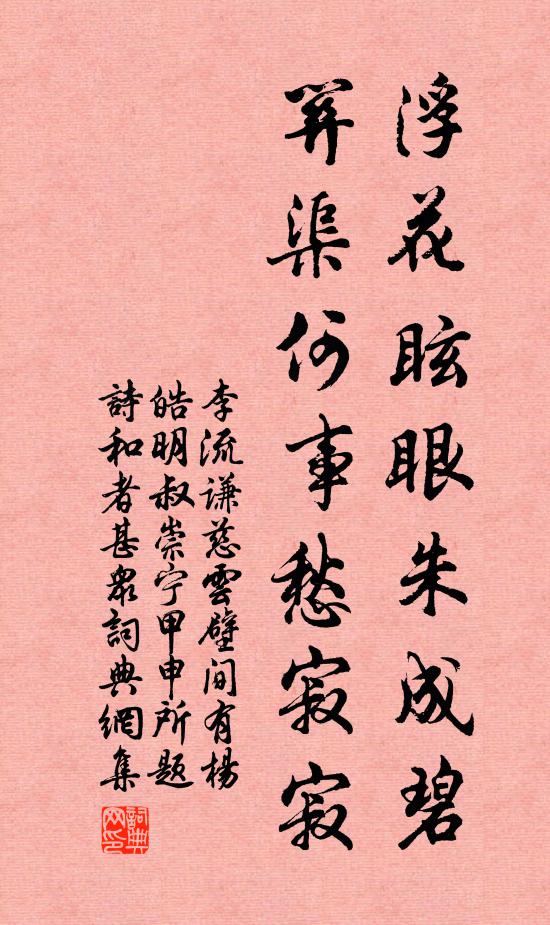 浮花眩眼朱成碧
渠何事愁寂寂
李流謙慈雲壁间有楊
皓明叔崇宁甲申所題
詩和者甚衆詞典網集
詞典网印